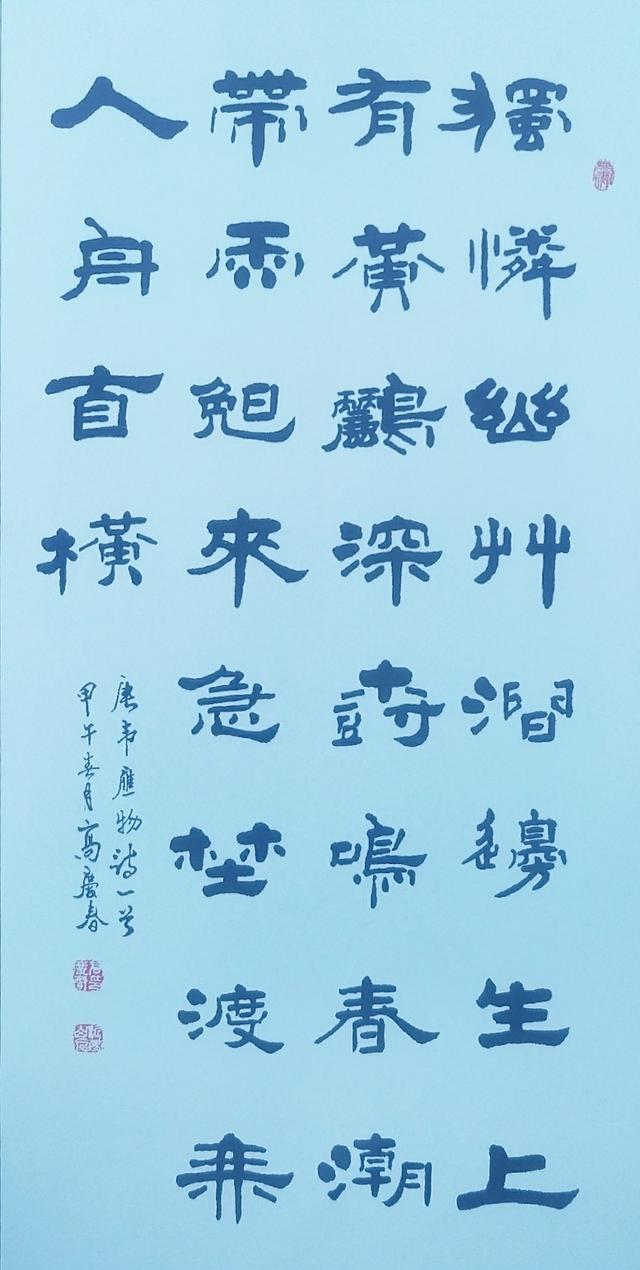 獨憐幽艸澗邊生上
有黃鸝深樹鳴春潮
帶雨晚來急埜渡無
人舟自橫
唐韦應物詩一首
甲午春月高慶春